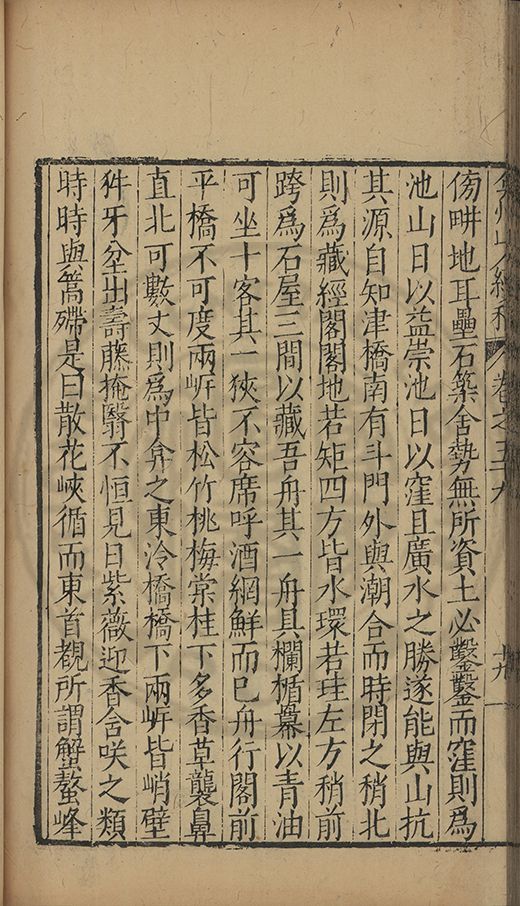 弇州山人續稿 卷之五十九 十九
傍畊地耳壘石築舍勢無所資土必鑿鑿而窪則為
池山日以益崇池日以窪且廣水之勝遂能與山抗
其源自知津橋南有斗門外與潮合而時閉之稍北
則為藏經閣閣地若矩四方皆水環若珪左方稍前
跨為石屋三間以藏吾舟其一舟具欄楯幕以青油
可坐十客其一狹不容席呼酒網鮮而已舟行閣前
平橋不可度兩㟁皆松竹桃梅棠桂下多香草襲鼻
直北可數丈則為中弇之東泠橋橋下兩㟁皆峭壁
牙坌出壽藤掩翳不恒見日紫薇迎香含咲之類
時時與篙㿃是曰散花峽循而東首觀所謂蟹螯峰